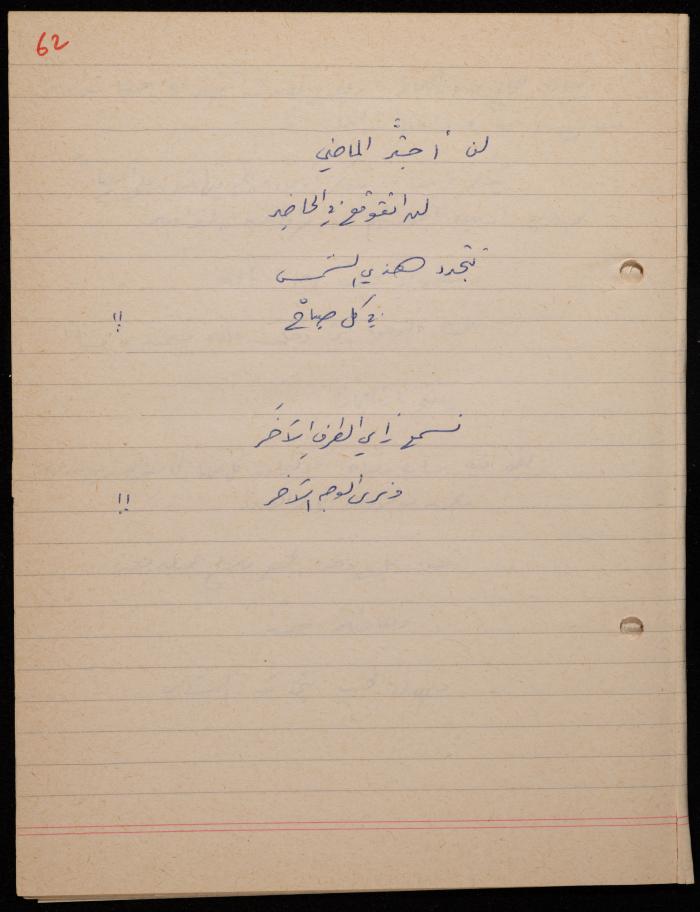 62
لن أجترَّ الماضي
لن اتقوقع في الحاضر
تتجدد هذي الشمس
في كل صباحْ !!
نسمع رأي الطرفِ الآخَر
ونرى الوجه الآخر !!